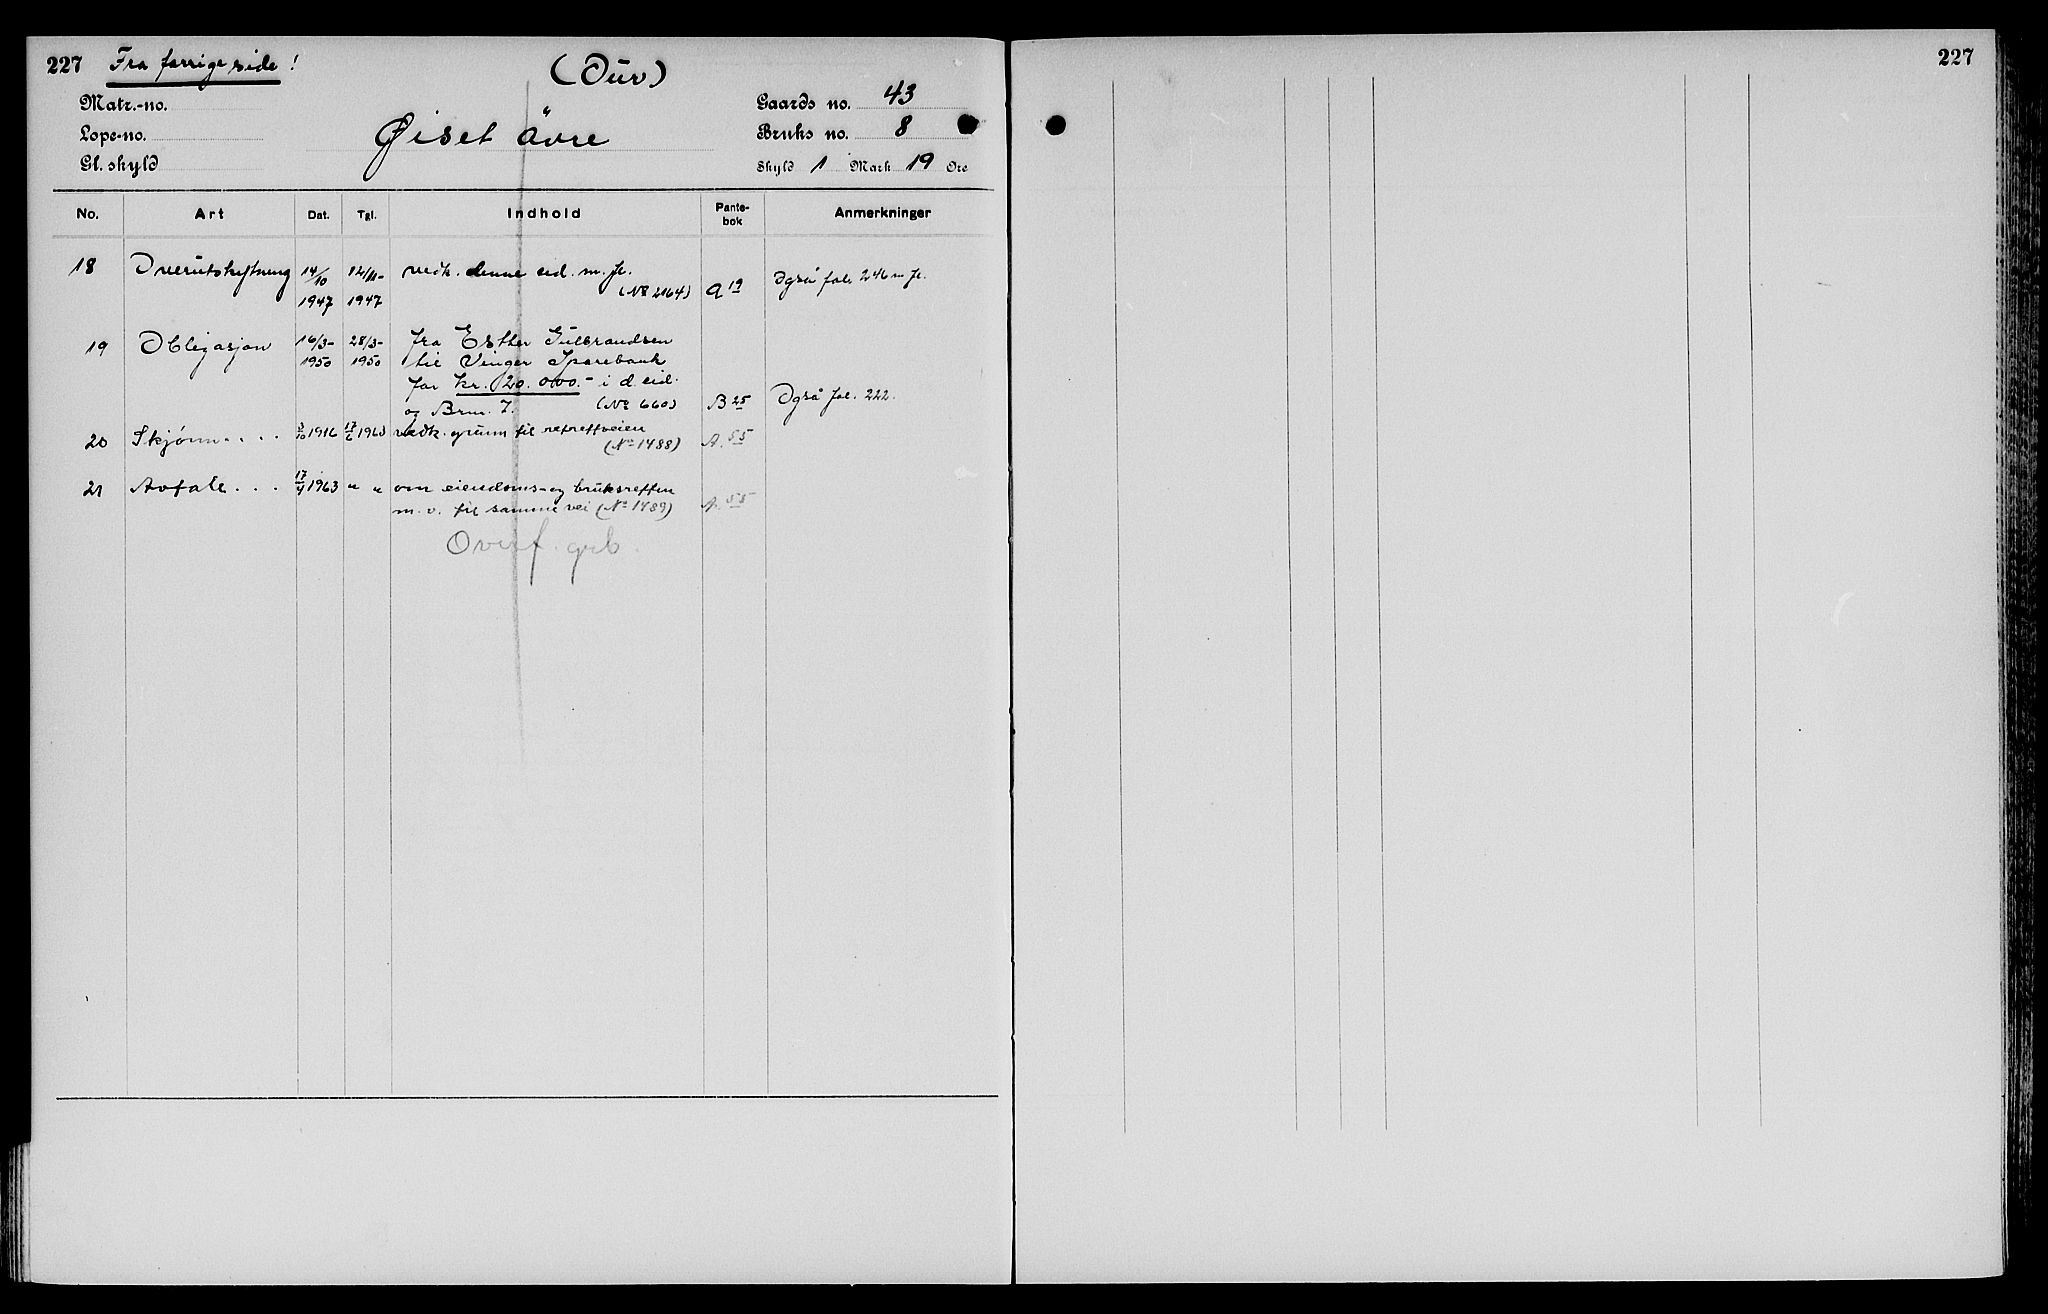 227 Fra forrige side!
(Duv)
Matr.-no.
Lope-no.
Gl. skyld
Øiset övre
Gaards no. 43
Bruks no. 8
Skyld 1 Mark 19 Ore
No. Art Dat. Tgl. Indhold Pante-bok Anmerkninger
18 Overutskiftning 14/10 12/11- vedk. denne eid. m. fl.
1947 1947 (No 2164) A 19 Også fol. 246 m fl.
19 Obligasjon 16/3- 28/3- fra Esther Gulbrandsen
1950 1950 til Vinger Sparebank
for kr. 20.000.- i d. eid.
og Brnr. 7. (No 660) B 25 Også fol. 222.
20 Skjønn.... 3/10 1916 17/6 1963 vedk. grunn til seterveien
(No 1488) A. 55
21 Avtale... 17/4 1963 " " om eiendoms- og bruksretten
m. v. til samme vei (No 1489) A. 55
Overf. grb.
227